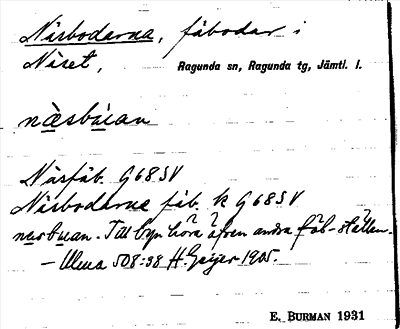 Näsbodarna, fäbodar i
Näset, Ragunda sn, Ragunda tg, Jämtl. l.
næsbùan
Näsfäb. G68SV
Näsbodarna fäb. k G68SV
næsbuan. Till byn höra även andra fäb-ställen.
– Ulma 508:38 H. Geijer 1905.
E. BURMAN 1931